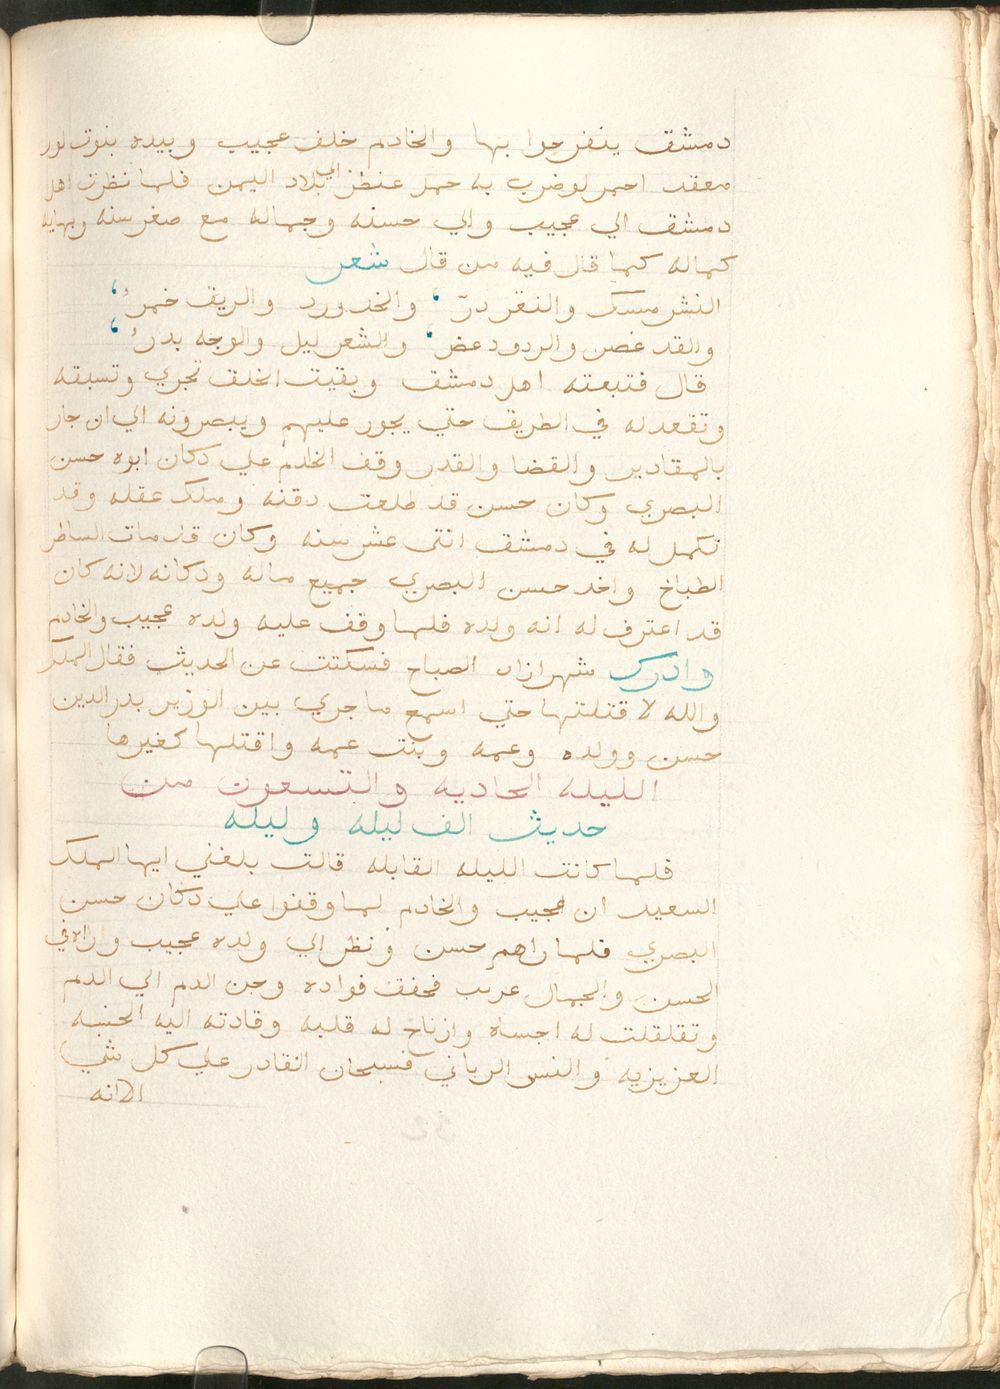 دمشق يتفرجوا بها والخادم خلف عجيب وبيده بنوت لوز
معقد احمر لو ضرب به حمل عنطز الي بلاد اليمن فلما نظرت اهل
دمشق الي عجيب والي حسنه وجماله مع صغر سنه وبهايه
كماله كما قال فيه من قال شعر
النشر مسك والثغر درّ ، والخد ورد والريق خمرُ ،
والقد غصن والردود عض ، والشعر ليل والوجه بدرُ ،
قال فتبعته اهل دمشق وبقيت الخلق تجري وتسبقه
وتقعد له في الطريق حتي يجوز عليهم ويبصرونه الي ان جاز
بالمقادير والقضا والقدر وقف الخادم علي دكان ابوه حسن
البصري وكان حسن قد طلعت دقنه وملك عقله وقد
تكمل له في دمشق اتنى عشر سنه وكان قد مات الساطر
الطباخ واخد حسن البصري جميع ماله ودكانه لانه كان
قد اعترف له انه ولده فلما وقف عليه ولده عجيب والخادم
وادرك شهرازاد الصباح فسكتت عن الحديث فقال الملك
والله لا قتلتها حتي اسمع ما جري بين الوزير بدر الدين
حسن وولده وعمه وبنت عمه واقتلها كغيرها
الليله الحاديه والتسعون من
حديث الف ليله وليله
فلما كانت الليله القابله قالت بلغني ايها الملك
السعيد ان عجيب والخادم لما وقفوا علي دكان حسن
البصري فلما راهم حسن ونظر الي ولده عجيب واراه في
الحسن والجمال غريب فخفق فواده وحن الدم الي الدم
وتقلقلت له احساه وارتاح له قلبه وقادته اليه الحنيه
العزيزيه والنس الرباني فسبحان القادر علي كل شي
الا انه